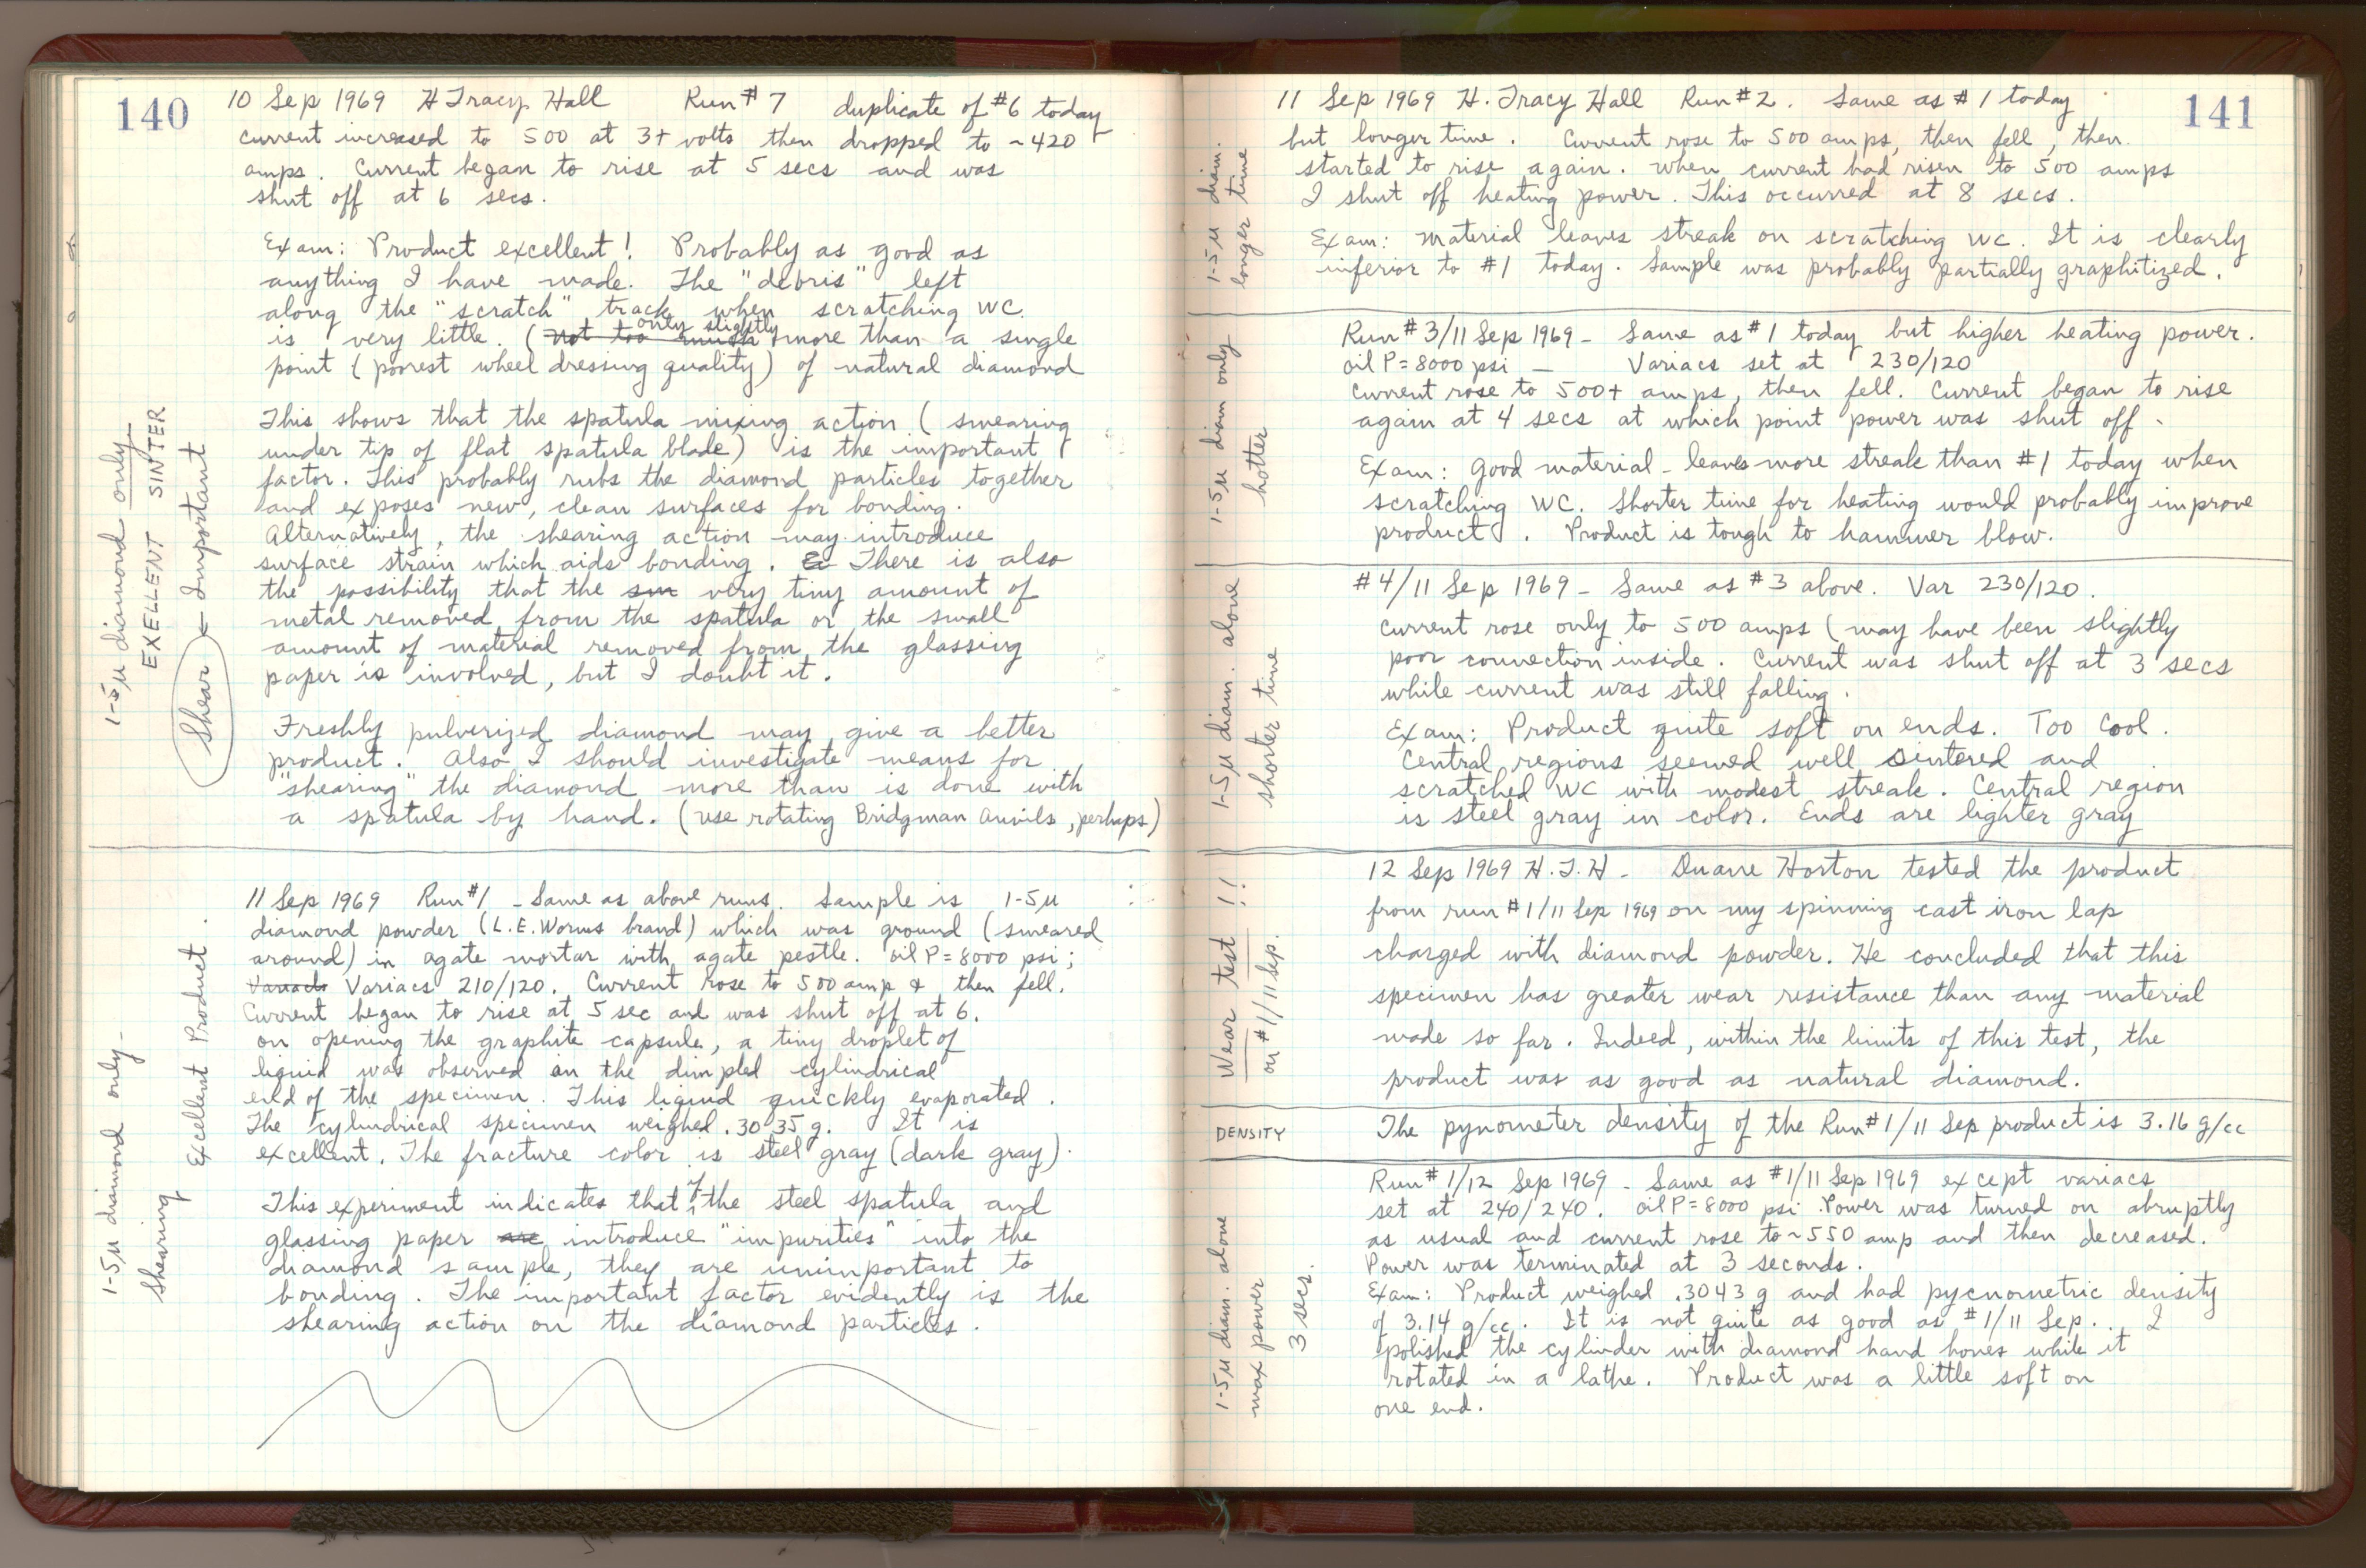 140
10 Sep 1969 H Tracy Hall Run #7 duplicate of #6 today
current increased to 500 at 3+ volts then dropped to ~420
amps. Current began to rise at 5 secs and was
shut off at 6 secs.
Exam: Product excellent! Probably as good as
anything I have made. The "debris" left
along the "scratch" track when scratching WC
is very little. (not too much only slightly more than a single
point (poorest wheel dressing quality) of natural diamond
1-5μ diamond only
EXELLENT SINTER
Shear ← Important
This shows that the spatula mixing action (smearing
under tip of flat spatula blade) is the important
factor. This probably rubs the diamond particles together
and exposes new, clean surfaces for bonding.
Alternatively, the shearing action may introduce
surface strain which aids bonding. There is also
the possibility that the very tiny amount of
metal removed from the spatula or the small
amount of material removed from the glassing
paper is involved, but I doubt it.
Freshly pulverized diamond may give a better
product. Also I should investigate means for
"shearing" the diamond more than is done with
a spatula by hand. (use rotating Bridgman Anvils, perhaps)
1-5μ diamond only -
Shearing
Excellent Product.
11 Sep 1969 Run #1 - Same as above runs. Sample is 1-5μ
diamond powder (L.E. Worms brand) which was ground (smeared
around) in agate mortar with agate pestle. oil P = 8000 psi;
Variacs Variacs 210/120. Current rose to 500 amp & then fell.
Current began to rise at 5 sec and was shut off at 6.
on opening the graphite capsule, a tiny droplet of
liquid was observed in the dimpled cylindrical
end of the specimen. This liquid quickly evaporated.
The cylindrical specimen weighed .3035 g. It is
excellent. The fracture color is steel gray (dark gray).
This experiment indicates that if the steel spatula and
glassing paper are introduce "impurities" into the
diamond sample, they are unimportant to
bonding. The important factor evidently is the
shearing action on the diamond particles.
141
1-5μ diam.
longer time
11 Sep 1969 H. Tracy Hall Run #2. Same as #1 today
but longer time. Current rose to 500 amps, then fell, then
started to rise again. When current had risen to 500 amps
I shut off heating power. This occurred at 8 secs.
Exam: Material leaves streak on scratching WC. It is clearly
inferior to #1 today. Sample was probably partially graphitized.
1-5μ diam only
hotter
Run #3/11 Sep 1969 - Same as #1 today but higher heating power.
oil P = 8000 psi — Variacs set at 230/120
Current rose to 500+ amps, then fell. Current began to rise
again at 4 secs at which point power was shut off -
Exam: Good material - leaves more streak than #1 today when
scratching WC. Shorter time for heating would probably improve
product. Product is tough to hammer blow.
1-5μ diam. alone
shorter time
#4/11 Sep 1969 - Same as #3 above. Var 230/120.
Current rose only to 500 amps (may have been slightly
poor connection inside. Current was shut off at 3 secs
while current was still falling.
Exam: Product quite soft on ends. Too Cool.
Central regions seemed well sintered and
scratched WC with modest streak. Central region
is steel gray in color. Ends are lighter gray
Wear test !!
on #1/11 Sep.
12 Sep 1969 H.T.H - Duane Horton tested the product
from run #1/11 Sep 1969 on my spinning cast iron lap
charged with diamond powder. He concluded that this
specimen has greater wear resistance than any material
made so far. Indeed, within the limits of this test, the
product was as good as natural diamond.
DENSITY
The pynometer density of the Run #1/11 Sep product is 3.16 g/cc
1-5μ diam. alone
max power
3 secs.
Run #1/12 Sep 1969 - Same as #1/11 Sep 1969 except variacs
set at 240/240. oil P = 8000 psi. Power was turned on abruptly
as usual and current rose to ~550 amp and then decreased.
Power was terminated at 3 seconds.
Exam: Product weighed .3043 g and had pycnometric density
of 3.14 g/cc. It is not quite as good as #1/11 Sep. I
polished the cylinder with diamond hand hones while it
rotated in a lathe. Product was a little soft on
one end.